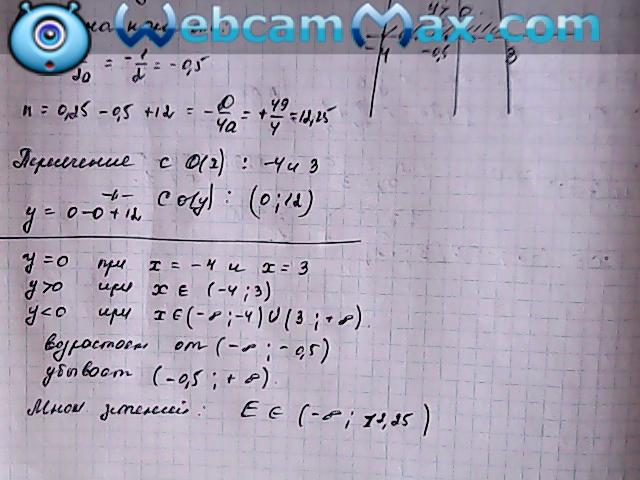 WebcamMax.com
y > 0
-4 -0,5 3
2a = -1/2 = -0,5
n = 0,25 - 0,5 + 12 = -D/4a = +49/4 = 12,25
Пересечение с O(x) : -4 и 3
-//- с o(y) : (0 ; 12)
y = 0-0+12
y = 0 при x = -4 и x = 3
y>0 при x ∈ (-4 ; 3)
y<0 при x ∈ (-∞ ; -4) ∪ (3 ; +∞).
возрастает от (-∞ ; -0,5)
убывает (-0,5 ; +∞).
Множ значений : E ∈ (-∞ ; 12,25)